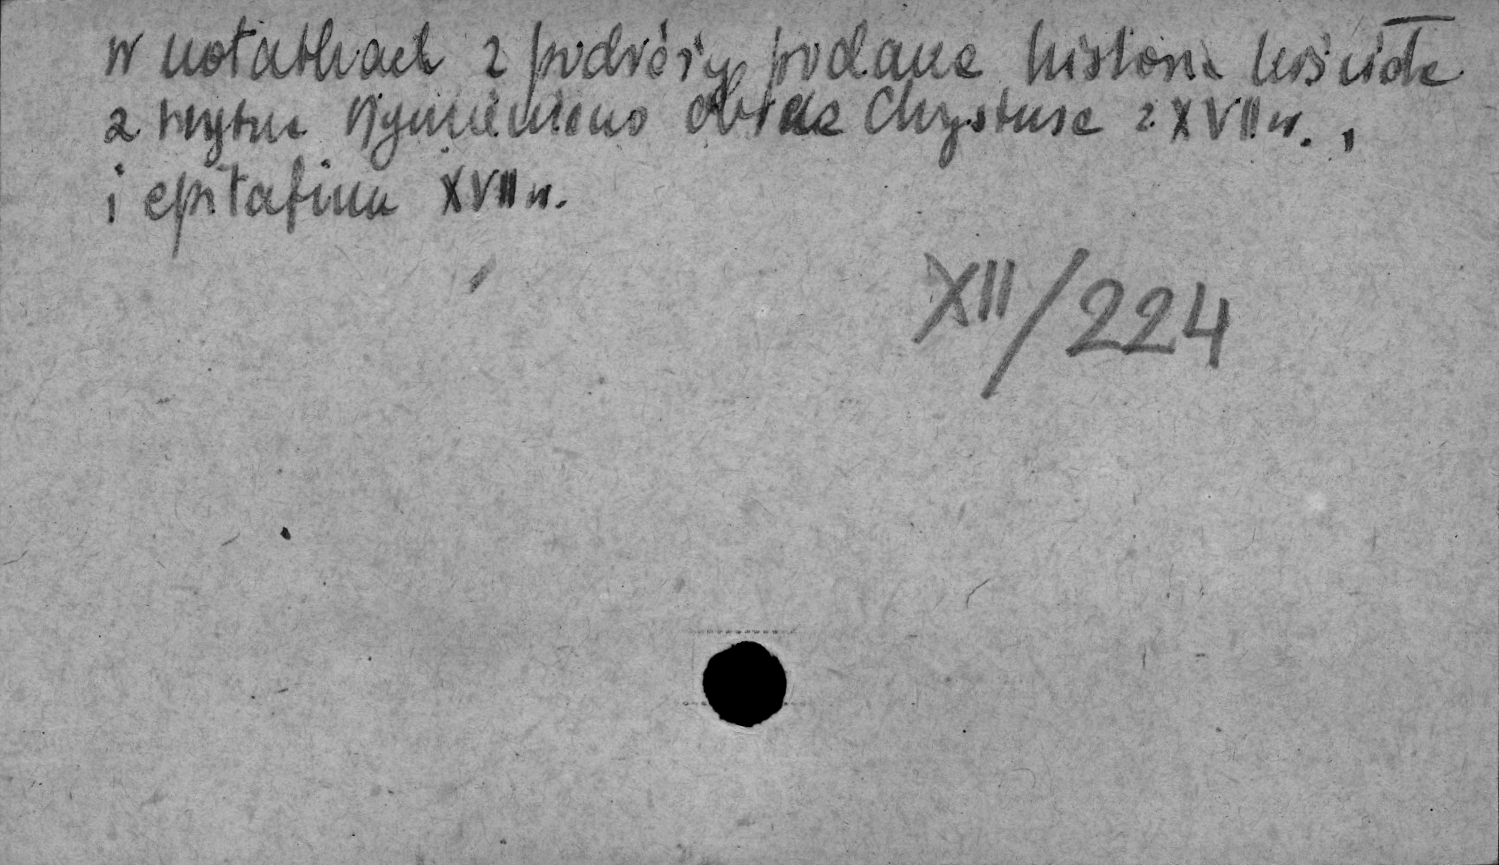 w notatkach z podróży podana historia kościoła
z wymieniono obraz Chrystusa z XVII w.,
i epitafium XVII w.
XII/224